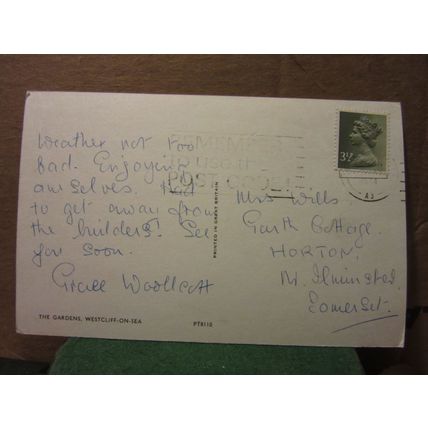 Weather not too
bad. Enjoying
ourselves. Had
to get away from
the builders! See
you soon.
Grace Woollcott
THE GARDENS, WESTCLIFF-ON-SEA
PT8110
PRINTED IN GREAT BRITAIN
REMEMBER
to use the
POST CODE
3½P
Mrs Wills
Garth Cottage
HORTON,
Nr. Ilminster,
Somerset.